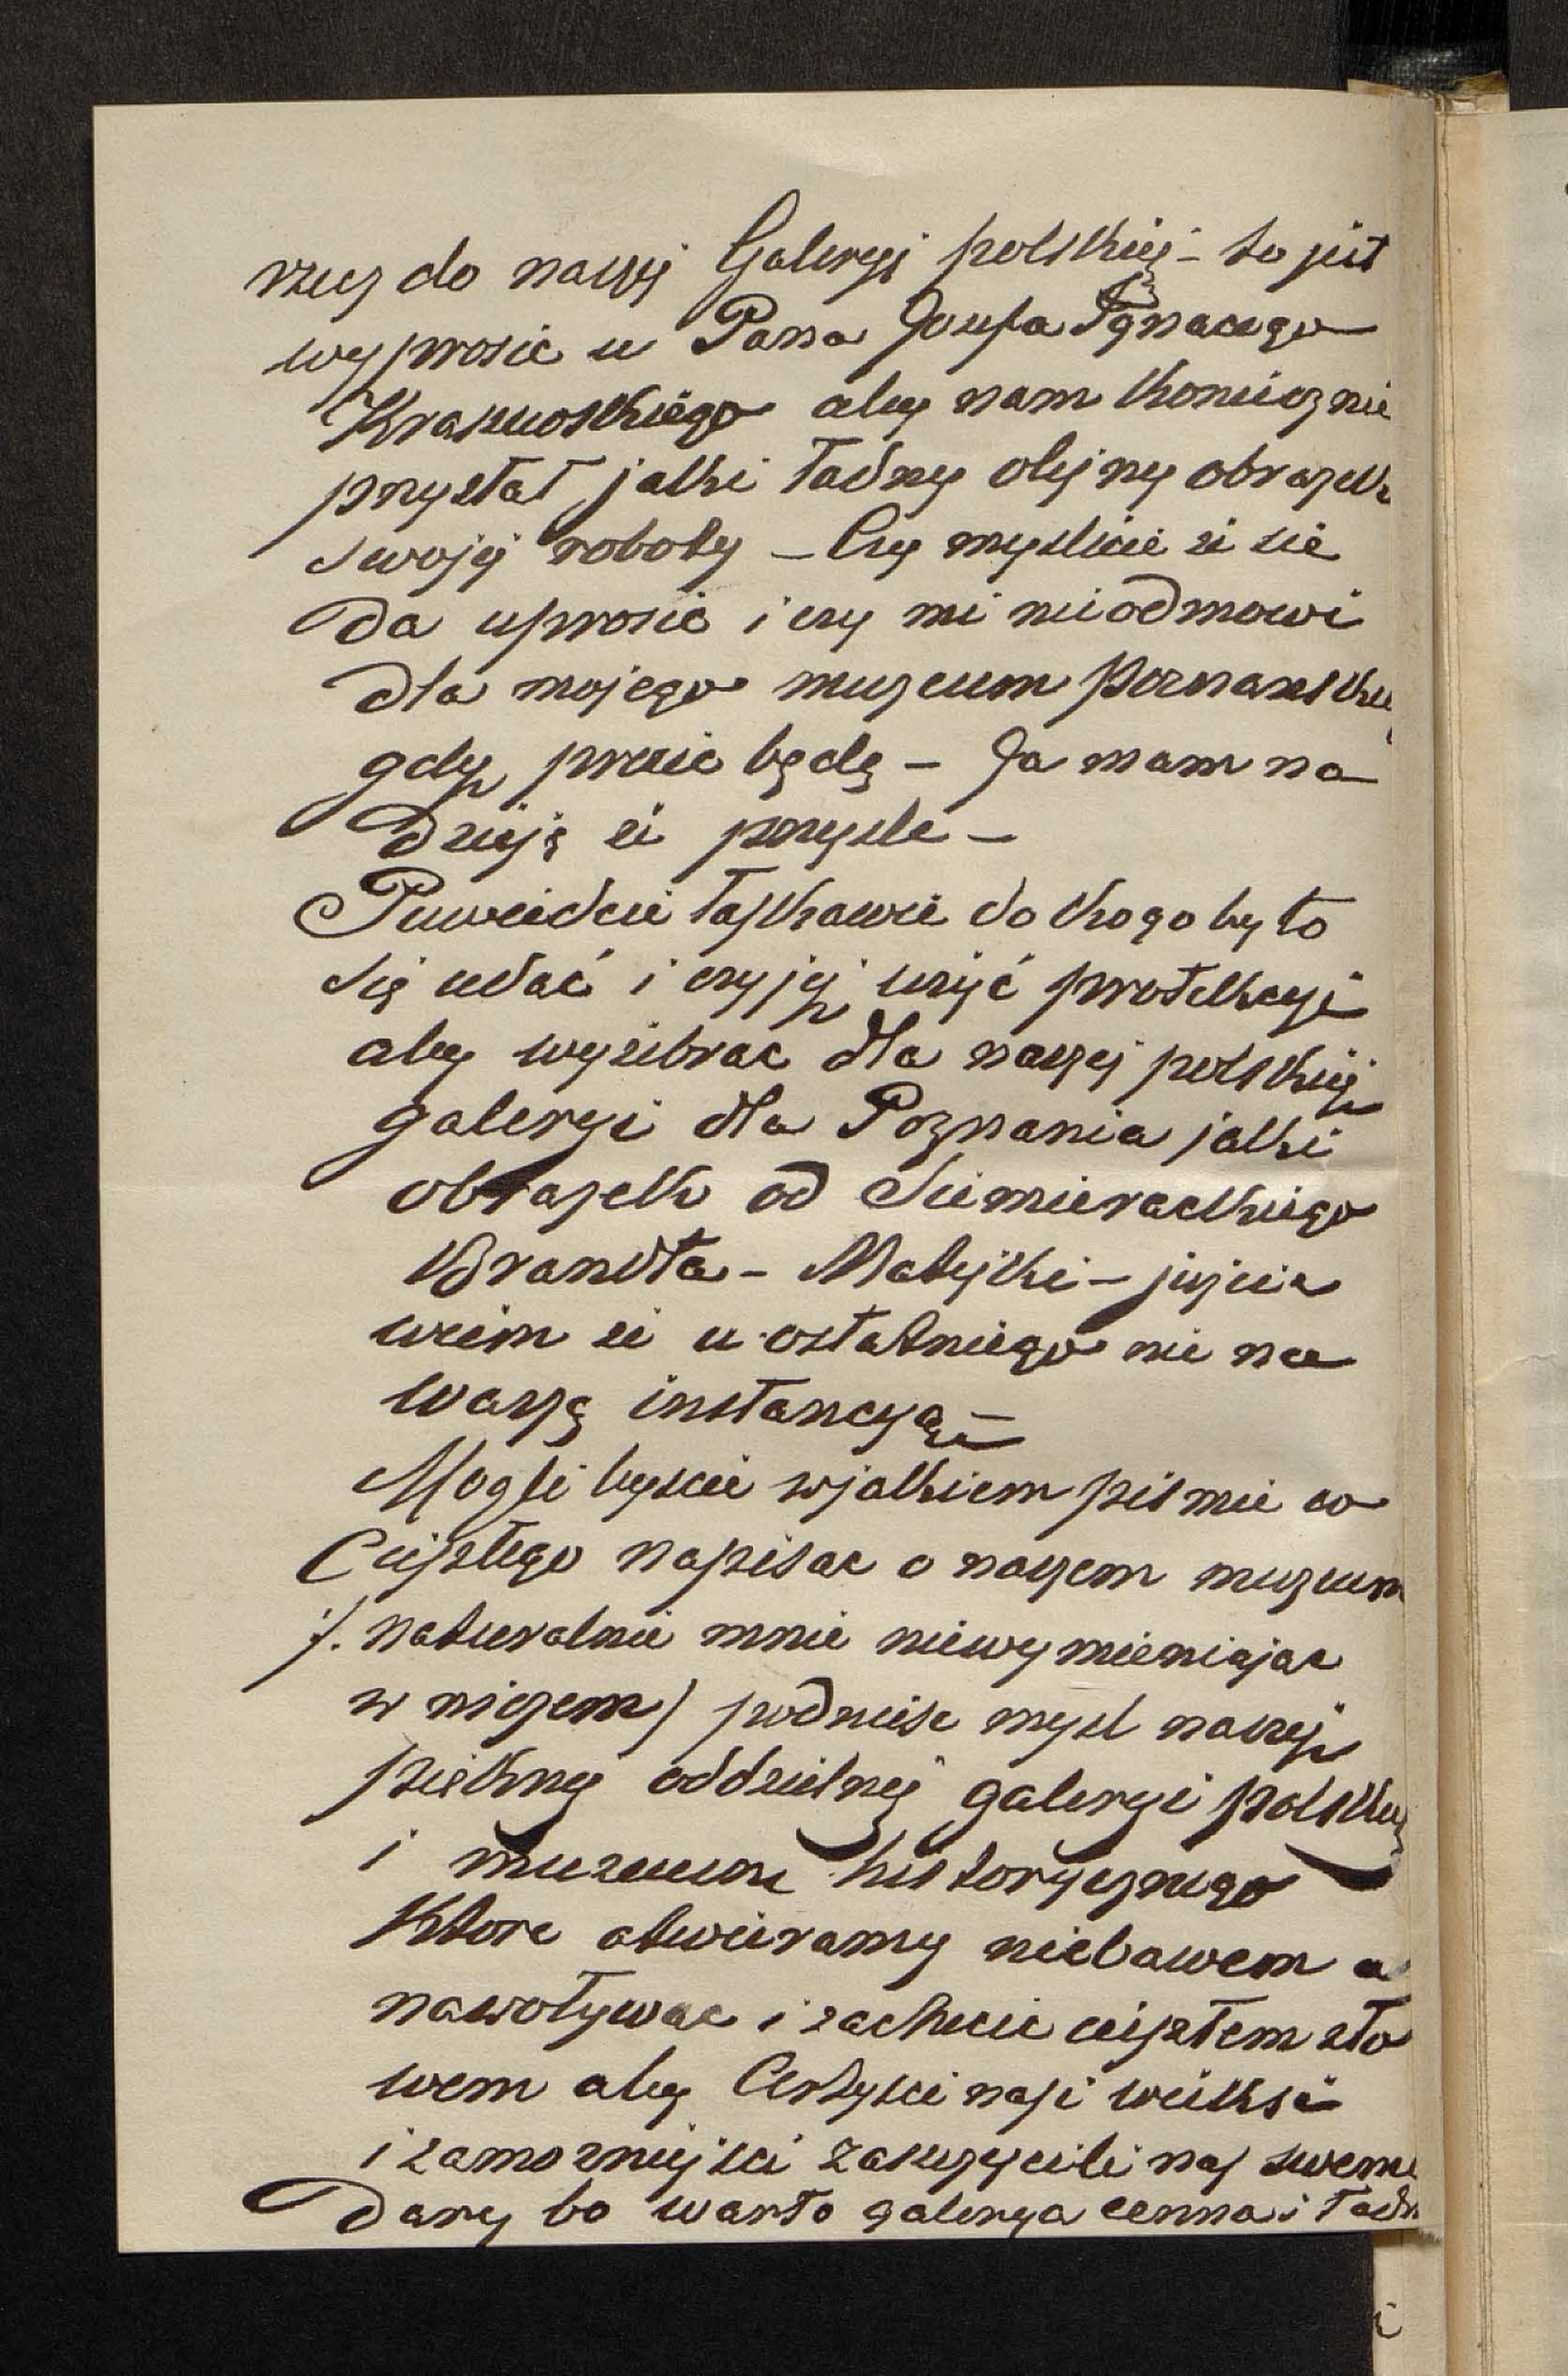 rzecz do naszej Galeryj polskiej – to jest
wyprosic u Pana Jozefa Ignacego
Kraszewskiego aby nam koniecznie
przysłał jaki ładny olejny obrazek
swojej roboty – Czy myslicie ze sie
da uprosic i czy mi nieodmowi
dla mojego muzeum Poznanskie
gdy prosic będę – Ja mam na
dzieję ze przysle –
Powiedzcie łaskawie do kogo by to
się udać i czyjej użyć protekcyi
aby wyzebrac dla naszej polskiej
galeryi dla Poznania jaki
obrazek od Siemieradzkiego
Brandta – Matejki – jużcic
wiem ze u ostatniego nie na
waszą instancyą –
Mogli byscie w jakiem pismie co
Ciepłego napisac o naszem muzeum
/. naturalnie mnie niewymieniajac
w niczem) podniesc mysl naszej
pieknej oddzielnej galeryi polskiej
i muzeum historycznego
Ktore otwieramy niebawem a
nawoływac i zachecic ciepłem sło
wem aby Artysci nasi wieksi
i zamozniejsi zaszczycili nas swemi
Dary bo warto galerya cenna i ładn